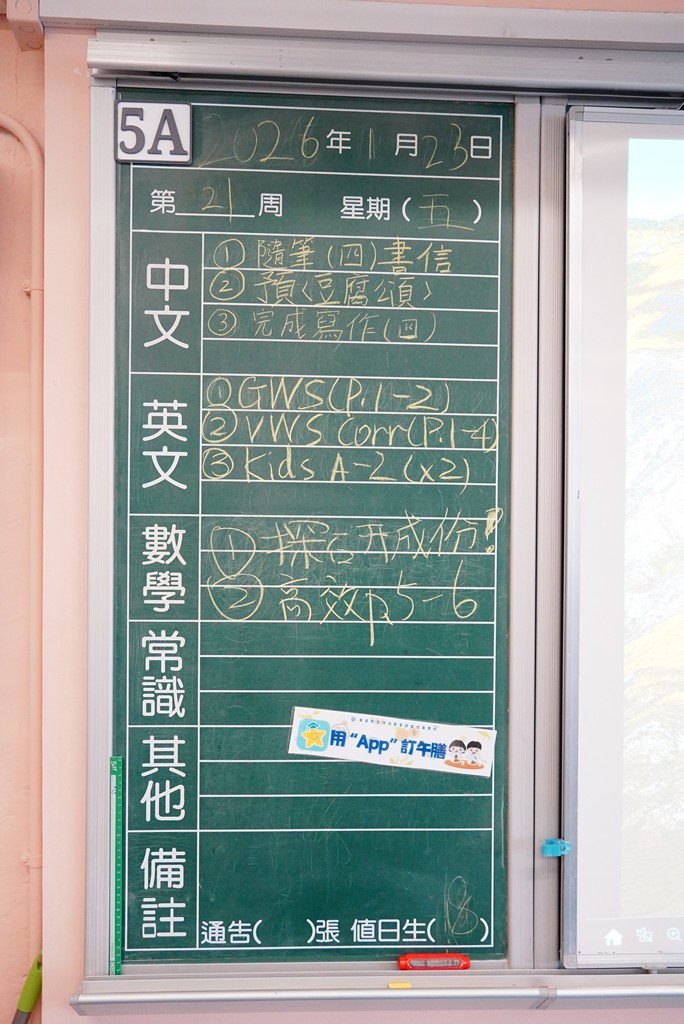 5A
2026年1月23日
第21周 星期(五)
中文
①隨筆(四)書信
②預〈豆腐頌〉
③完成寫作(四)
英文
①GWS(P.1-2)
②VWS Corr(P.1-4)
③Kids A-Z(x2)
數學
①成份!
②高效p5-6
常識
其他
用“App”訂午膳
備註
通告( )張 值日生(18)